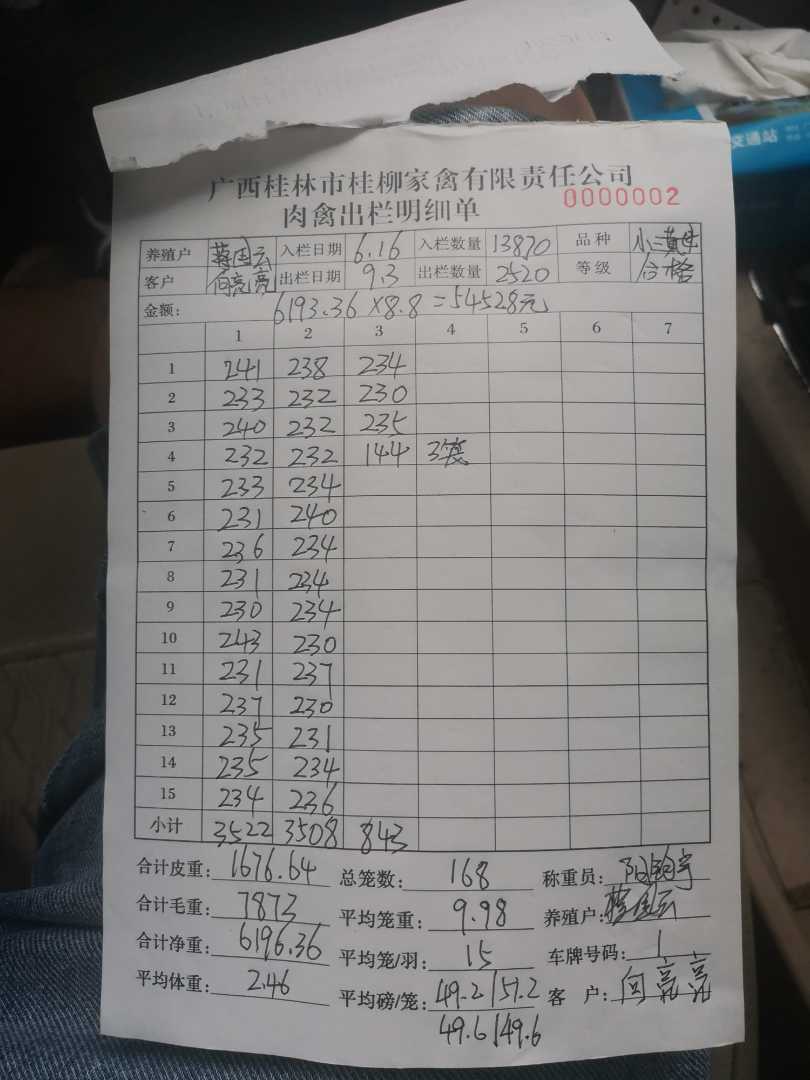 广西桂林市桂柳家禽有限责任公司
肉禽出栏明细单 0000002
养殖户 蒋国云 入栏日期 6.16 入栏数量 13870 品种 小三黄
客户 何亮亮 出栏日期 9.3 出栏数量 2520 等级 合格
金额: 6193.36×8.8=54528元
1 2 3 4 5 6 7
1 241 238 234
2 233 232 230
3 240 232 235
4 232 232 144 3笼
5 233 234
6 231 240
7 236 234
8 231 234
9 230 234
10 243 230
11 231 237
12 237 230
13 235 231
14 235 234
15 234 236
小计 3522 3508 843
合计皮重: 1676.64 总笼数: 168 称重员:
合计毛重: 7873 平均笼重: 9.98 养殖户: 蒋国云
合计净重: 6196.36 平均笼/羽: 15 车牌号码: 1
平均体重: 2.46 平均磅/笼: 49.2/51.2 客户: 何亮亮
49.6/49.6
交通站